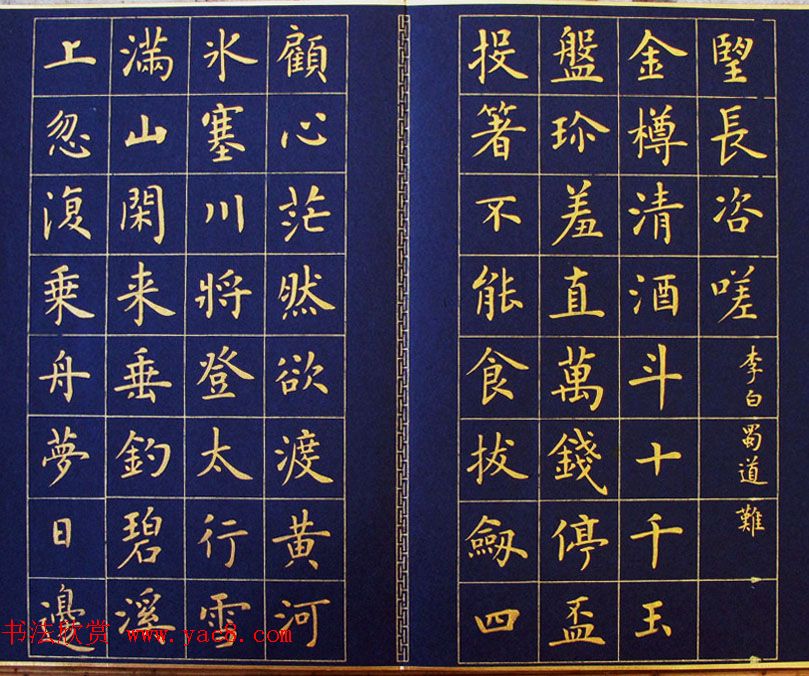 望長咨嗟
李白蜀道難
金樽清酒斗十千玉
盤珍羞直萬錢停盃
投箸不能食拔劔四
顧心茫然欲渡黃河
氷塞川將登太行雪
滿山閑来垂釣碧溪
上忽復乘舟夢日邊
书法欣赏 www.yac8.com